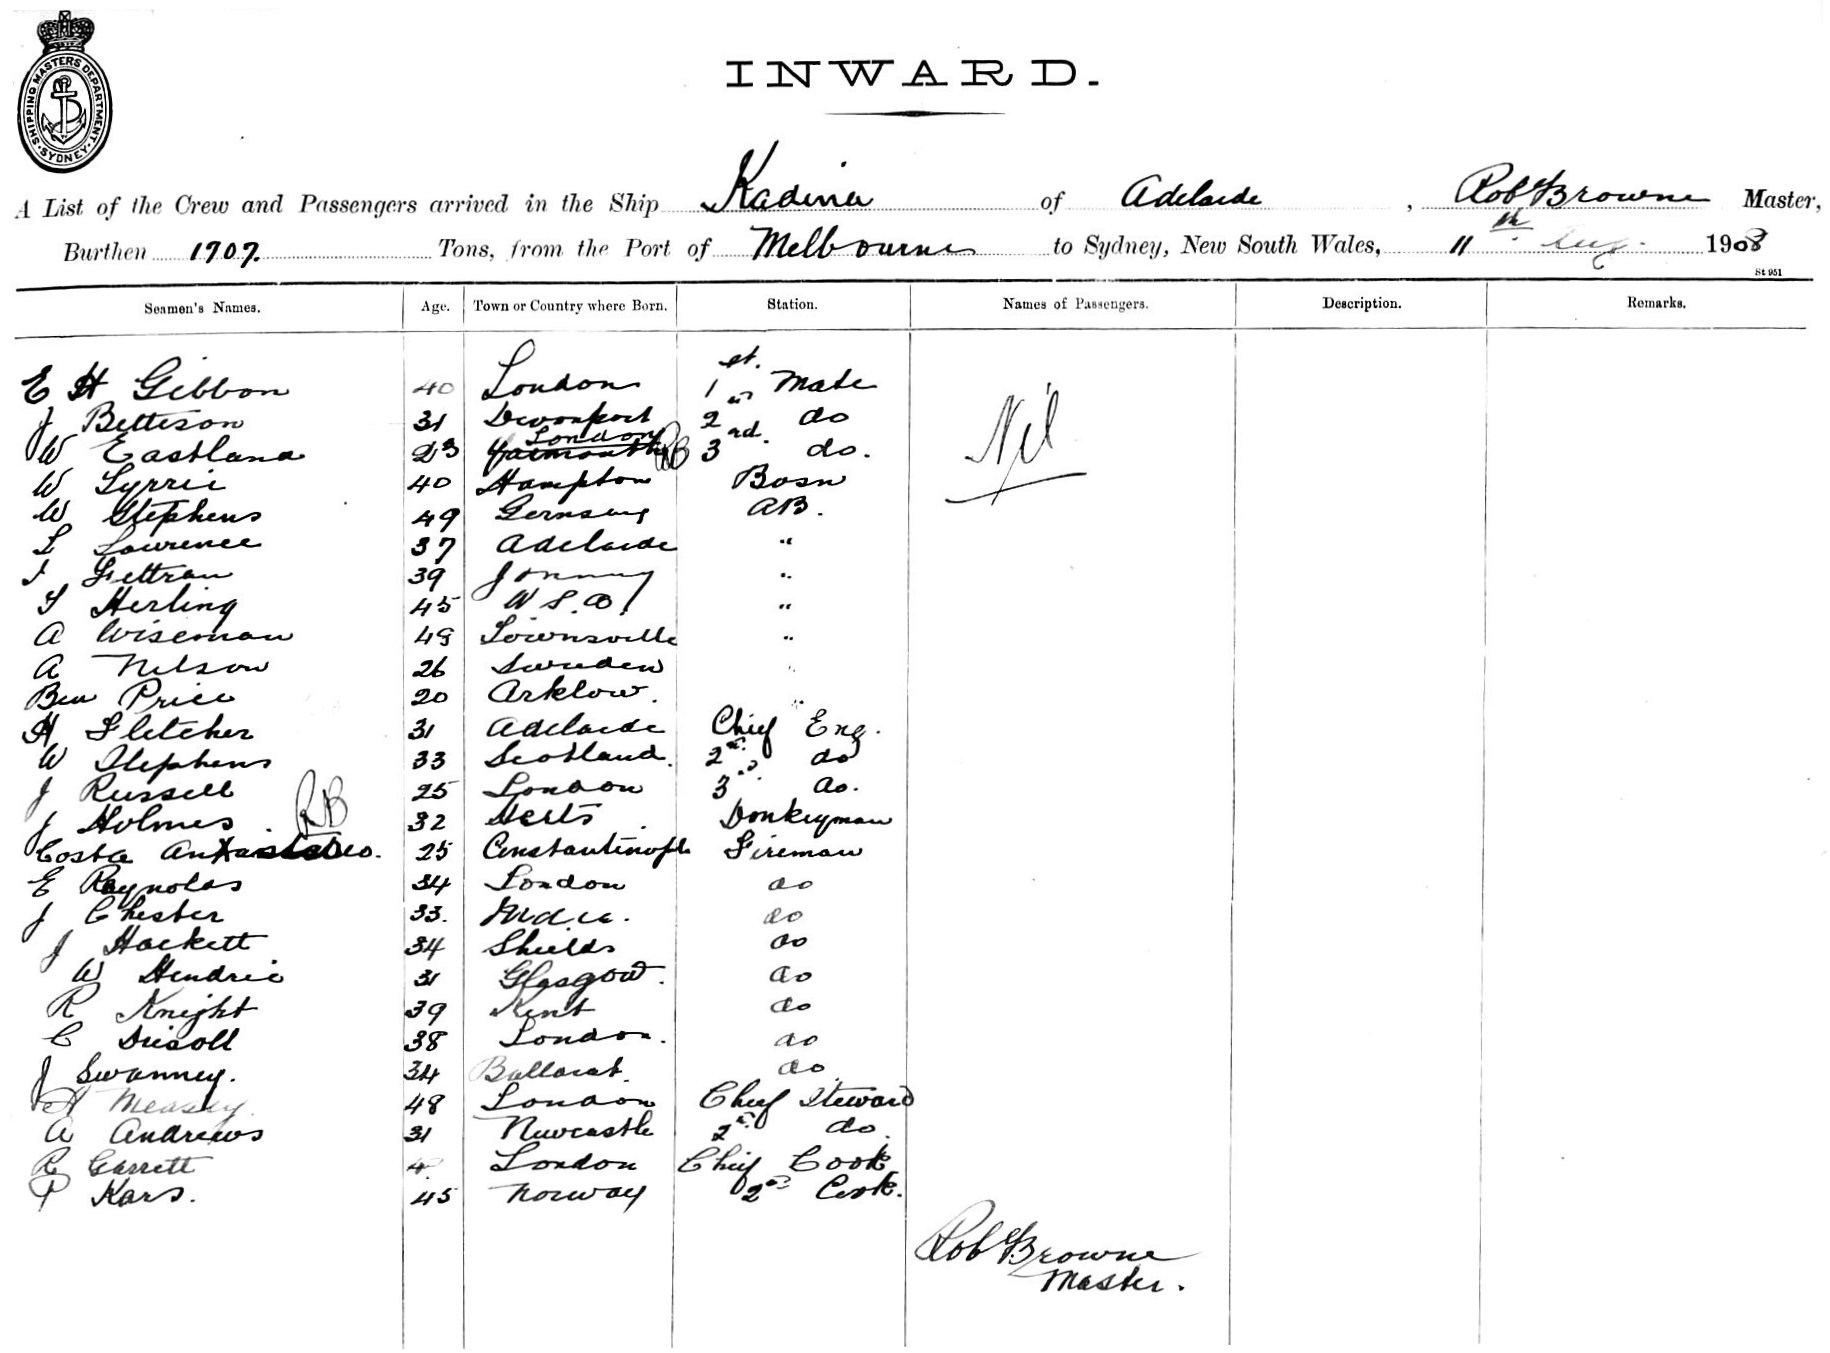 SHIPPING MASTERS DEPARTMENT. SYDNEY
INWARD.
A List of the Crew and Passengers arrived in the Ship Kadina of Adelaide, Robt Browne Master,
Burthen 1707. Tons, from the Port of Melbourne to Sydney, New South Wales, 11th Aug. 1908
St 951
Seamen's Names. Age. Town or Country where Born. Station. Names of Passengers. Description. Remarks.
E H Gibbon 40 London 1st. Mate
J Betteson 31 Devonport 2nd do
W Eastland 23 Yarmouth London RB 3rd. do.
Nil
W 40 Hampton Bosn
W Stephens 49 Gernsey AB.
L Lawrence 37 Adelaide "
39 "
Herling 45 "
A Wiseman 49 Townsville "
A Nelson 26 Sweden "
Ben Price 20 Arklow. "
H Fletcher 31 Adelaide Chief Eng.
W Stephens 33 Scotland. 2nd. do
J Russell 25 London 3rd. do.
J Holmes. RB 32 Herts Donkeyman
Costa 25 Constantinople Fireman
E Raynolds 34 London do
J Chester 33. India. do
J Hackett 34 Shields do
W Hendrie 31 Glasgow. do
R Knight 39 Kent do
C Driscoll 38 London. do
J Swanney. 34 Ballarat. do
H Measey 48 London Chief Steward
A Andrews 31 Newcastle 2nd. do.
R Garrett London Chief Cook
P Kars. 45 Norway 2nd Cook.
Robt Browne
Master.